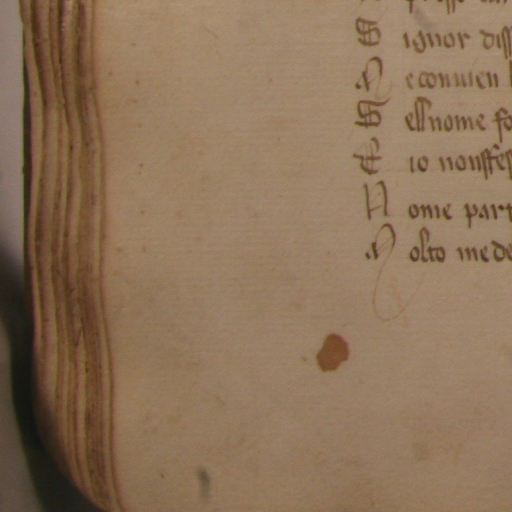 S ignor diss
M econuien
S ellnome fo
E io nonffes
N ome part
M olto mede